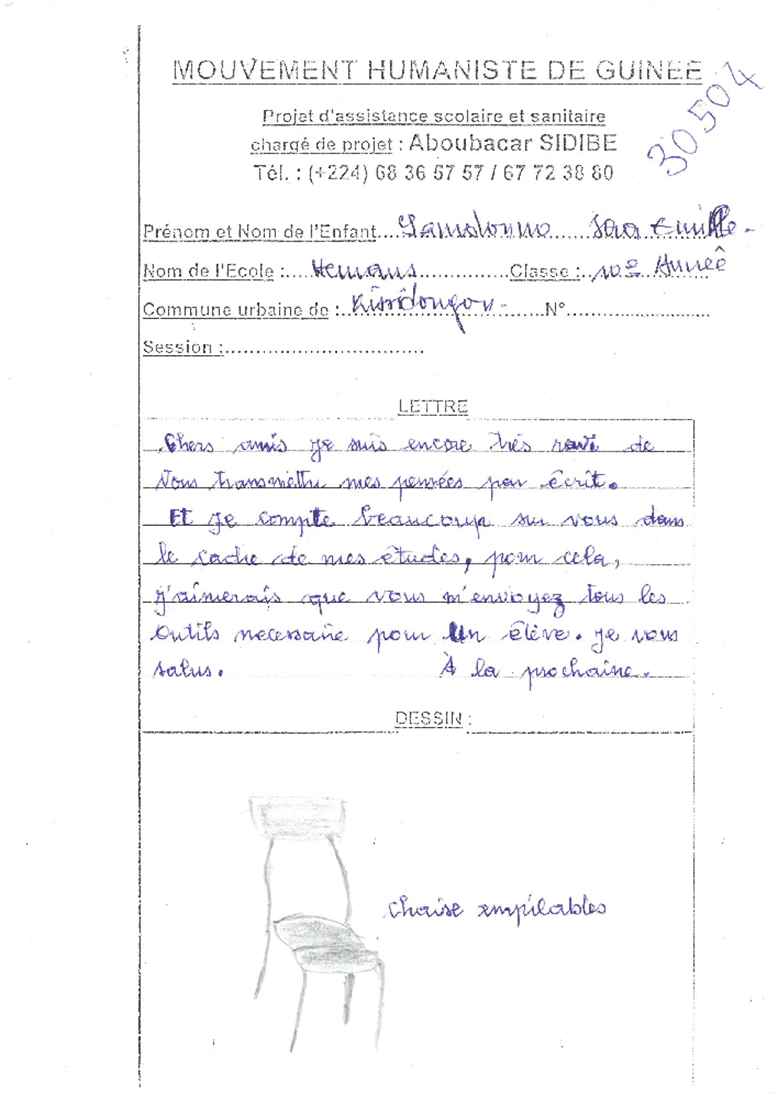 MOUVEMENT HUMANISTE DE GUINEE
30504
Projet d'assistance scolaire et sanitaire
chargé de projet : Aboubacar SIDIBE
Tél. : (+224) 68 36 57 57 / 67 72 38 80
Prénom et Nom de l'Enfant....
Nom de l'Ecole :.... Classe :..10e Anneê
Commune urbaine de : N°........................
Session :.................................
LETTRE
Chers amis je suis encore très ravi de
Vous transmettre mes pensées par écrit.
Et je compte beaucoup sur vous dans
le cadre de mes études, pour cela,
j'aimerais que vous m'envoyez tous les
Outils necessaire pour Un élève. je vous
salus. À la prochaine.
DESSIN :
Chaise empilables